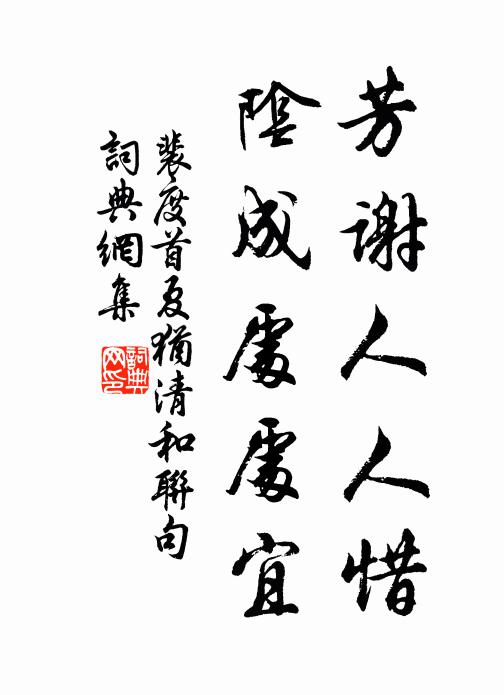 芳謝人人惜
陰成處處宜
裴度首夏猶清和聯句
詞典網集
詞典
网印